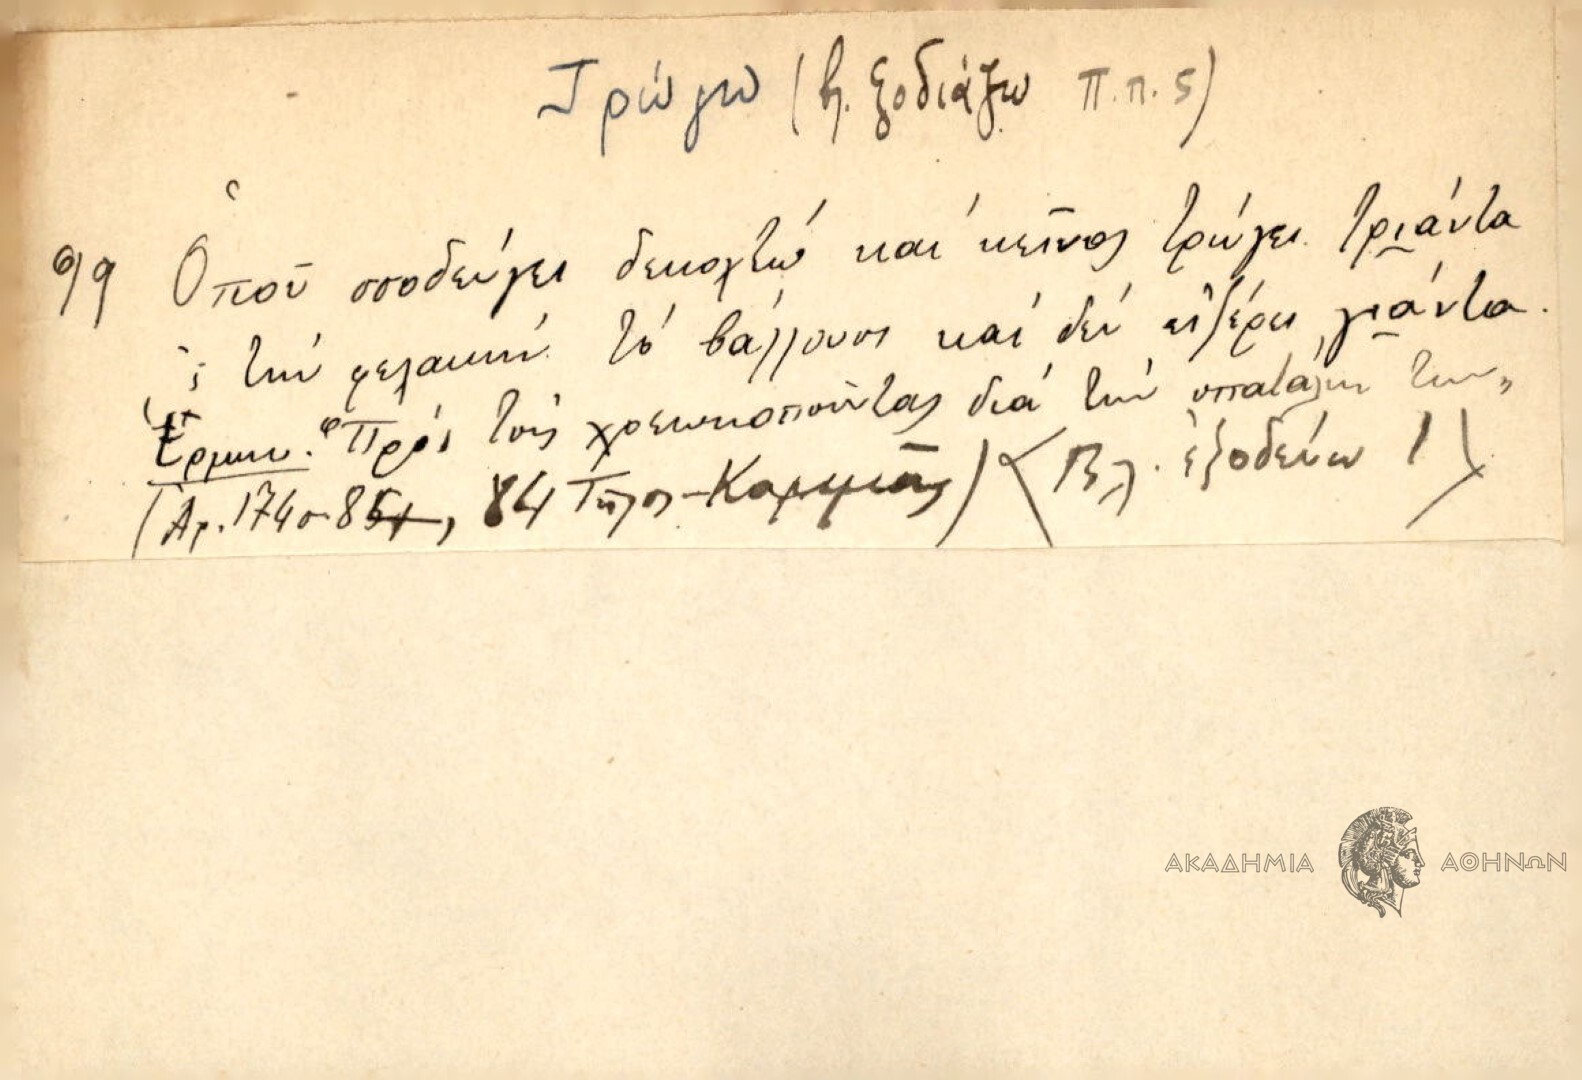 Τρώγω (βλ. ξοδιάζω π.π. 5)
99 Ὁποῦ σοδεύγει δεκοχτώ καί κεῖνος τρώγει τριάντα
ς τήν φελακήν τό βάλλουσι καί δέν ηξέρει γιάντα.
Ἑρμην. "Πρός τούς χρεωκοποῦντας διά τήν σπατάλην των"
(Ἀρ. 174 σ. 84 Τῆλος - Καρμιᾶς) (Βλ. ἐξοδεύω 1)
ΑΚΑΔΗΜΙΑ ΑΘΗΝΩΝ